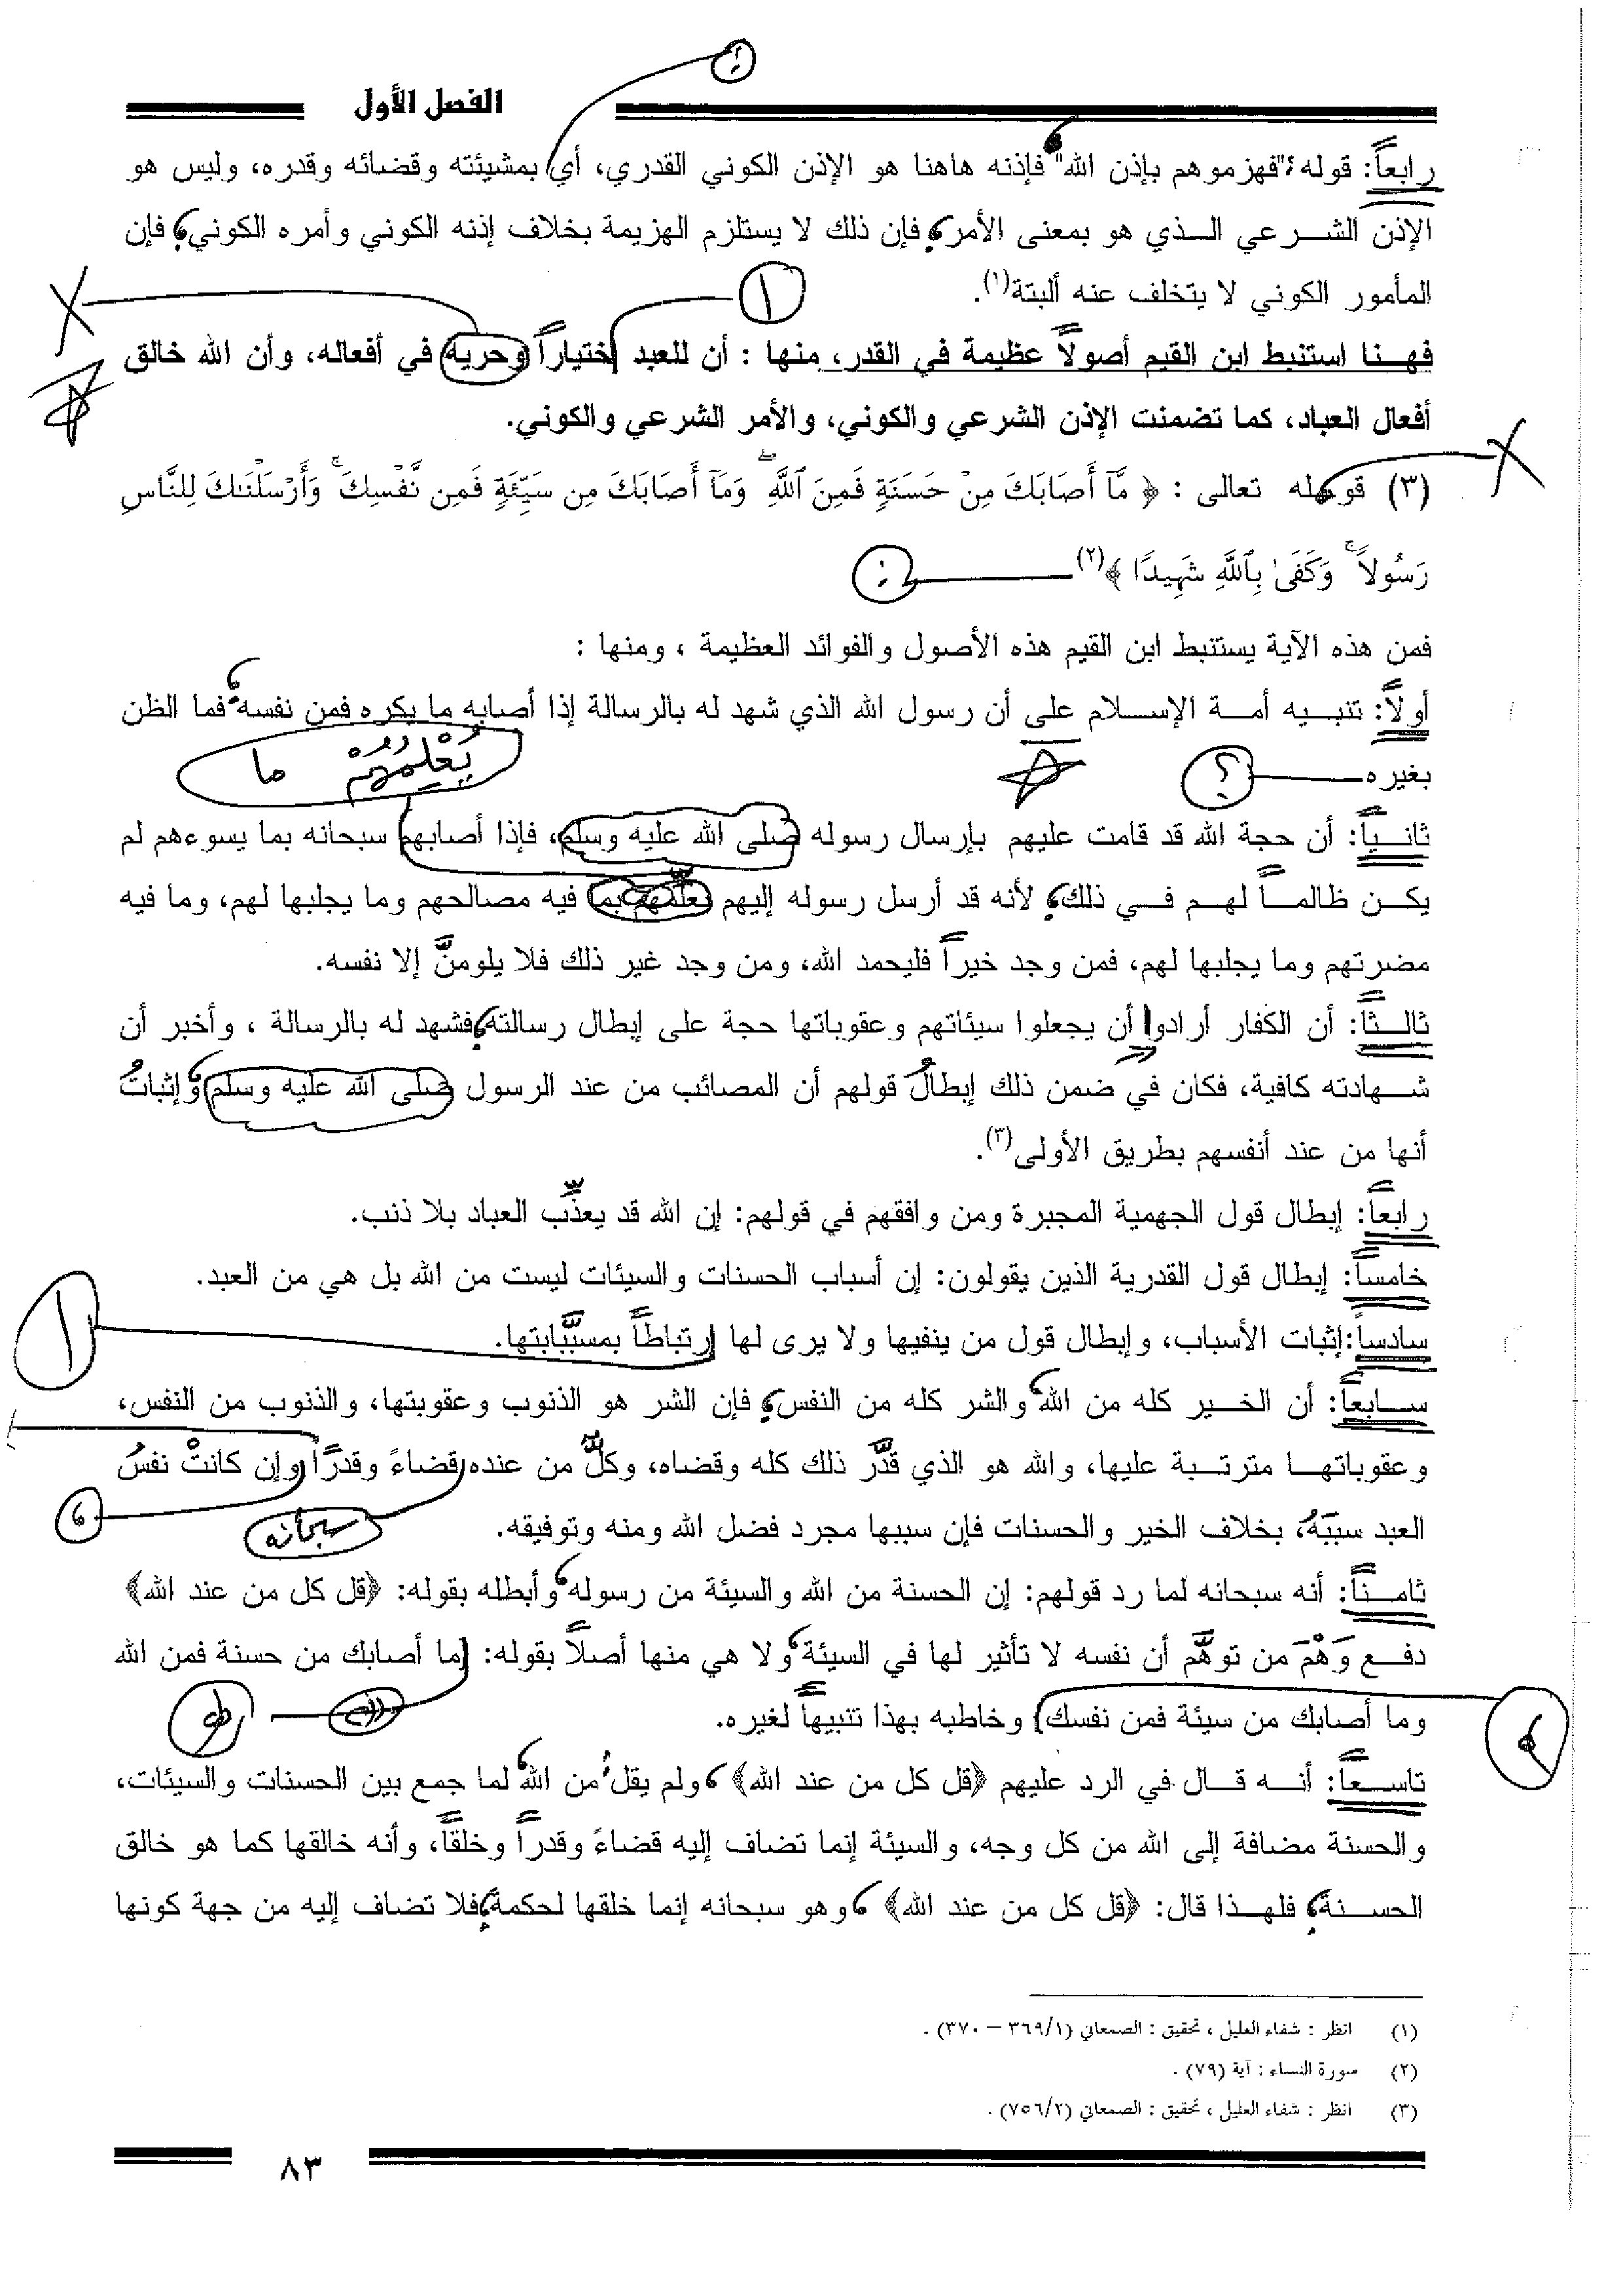 الفصل الأول
رابعاً: قوله: "فهزموهم بإذن الله" فإذنه هاهنا هو الإذن الكوني القدري، أي بمشيئته وقضائه وقدره، وليس هو
الإذن الشرعي الذي هو بمعنى الأمر، فإن ذلك لا يستلزم الهزيمة بخلاف إذنه الكوني وأمره الكوني، فإن
المأمور الكوني لا يتخلف عنه ألبتة(١).
فهنا استنبط ابن القيم أصولاً عظيمة في القدر، منها : أن للعبد اختياراً وحرية في أفعاله، وأن الله خالق
أفعال العباد، كما تضمنت الإذن الشرعي والكوني، والأمر الشرعي والكوني.
(٣) قوله تعالى : ﴿ مَّآ أَصَابَكَ مِنْ حَسَنَةٍ فَمِنَ ٱللَّهِ ۖ وَمَآ أَصَابَكَ مِن سَيِّئَةٍ فَمِن نَّفْسِكَ ۚ وَأَرْسَلْنَـٰكَ لِلنَّاسِ
رَسُولاً ۚ وَكَفَىٰ بِٱللَّهِ شَهِيدًا ﴾(٢) :
فمن هذه الآية يستنبط ابن القيم هذه الأصول والفوائد العظيمة ، ومنها :
أولاً: تنبيه أمة الإسلام على أن رسول الله الذي شهد له بالرسالة إذا أصابه ما يكره فمن نفسه، فما الظن
بغيره ؟
يُعْلِمُهُمْ ما
ثانياً: أن حجة الله قد قامت عليهم بإرسال رسوله صلى الله عليه وسلم، فإذا أصابهم سبحانه بما يسوءهم لم
يكن ظالماً لهم في ذلك، لأنه قد أرسل رسوله إليهم يعلّمهم بما فيه مصالحهم وما يجلبها لهم، وما فيه
مضرتهم وما يجلبها لهم، فمن وجد خيراً فليحمد الله، ومن وجد غير ذلك فلا يلومنَّ إلا نفسه.
ثالثاً: أن الكفار أرادوا أن يجعلوا سيئاتهم وعقوباتها حجة على إبطال رسالته، فشهد له بالرسالة ، وأخبر أن
شهادته كافية، فكان في ضمن ذلك إبطالُ قولهم أن المصائب من عند الرسول صلى الله عليه وسلم، وإثباتُ
أنها من عند أنفسهم بطريق الأولى(٣).
رابعاً: إبطال قول الجهمية المجبرة ومن وافقهم في قولهم: إن الله قد يعذّب العباد بلا ذنب.
خامساً: إبطال قول القدرية الذين يقولون: إن أسباب الحسنات والسيئات ليست من الله بل هي من العبد.
سادساً:إثبات الأسباب، وإبطال قول من ينفيها ولا يرى لها ارتباطاً بمسبَّباتها.
سابعاً: أن الخير كله من الله، والشر كله من النفس، فإن الشر هو الذنوب وعقوبتها، والذنوب من النفس،
وعقوباتها مترتبة عليها، والله هو الذي قدَّر ذلك كله وقضاه، وكلٌّ من عنده قضاءً وقدرًا وإن كانتْ نفسُ
العبد سببَهُ، بخلاف الخير والحسنات فإن سببها مجرد فضل الله ومنه وتوفيقه.
سبحانه
ثامناً: أنه سبحانه لما رد قولهم: إن الحسنة من الله والسيئة من رسوله، وأبطله بقوله: ﴿قل كل من عند الله﴾
دفع وَهْمَ من توهَّم أن نفسه لا تأثير لها في السيئة، ولا هي منها أصلاً بقوله: {ما أصابك من حسنة فمن الله
وما أصابك من سيئة فمن نفسك} وخاطبه بهذا تنبيهاً لغيره.
تاسعاً: أنه قال في الرد عليهم ﴿قل كل من عند الله﴾، ولم يقل: من الله، لما جمع بين الحسنات والسيئات،
والحسنة مضافة إلى الله من كل وجه، والسيئة إنما تضاف إليه قضاءً وقدراً وخلقاً، وأنه خالقها كما هو خالق
الحسنة، فلهذا قال: ﴿قل كل من عند الله﴾، وهو سبحانه إنما خلقها لحكمة، فلا تضاف إليه من جهة كونها
(١) انظر : شفاء العليل ، تحقيق : الصمعاني (٣٦٩/١ – ٣٧٠) .
(٢) سورة النساء : آية (٧٩) .
(٣) انظر : شفاء العليل ، تحقيق : الصمعاني (٧٥٦/٢) .
٨٣